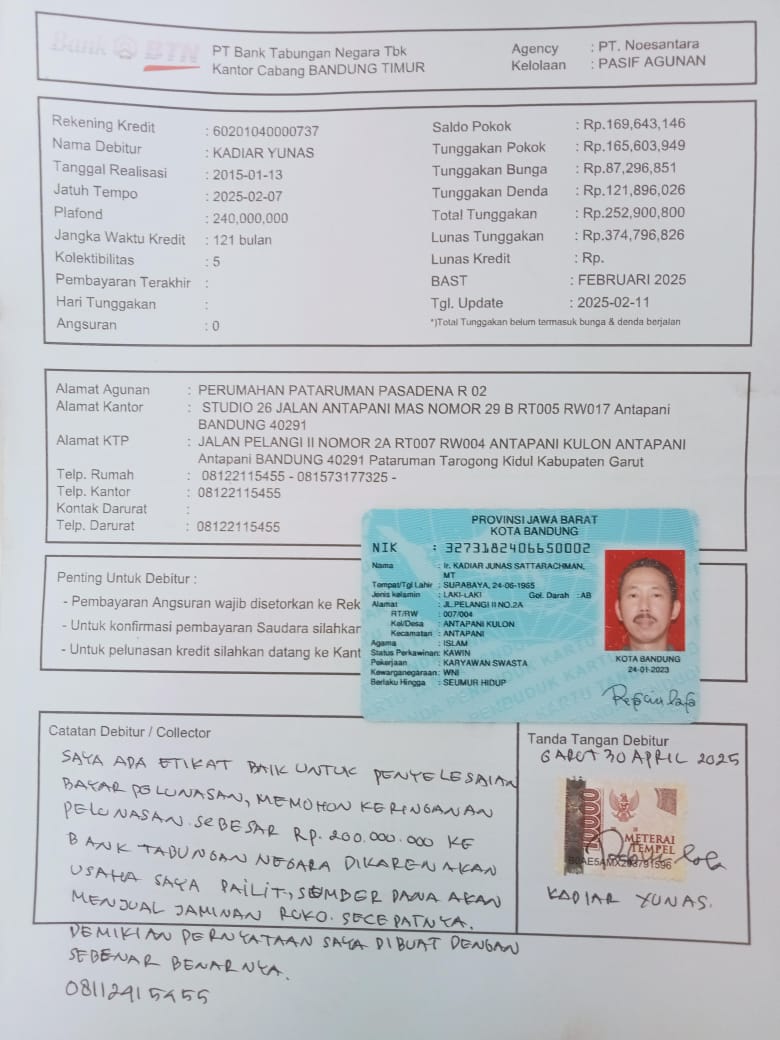 Bank BTN
PT Bank Tabungan Negara Tbk
Kantor Cabang BANDUNG TIMUR
Agency : PT. Noesantara
Kelolaan : PASIF AGUNAN
Rekening Kredit : 60201040000737
Nama Debitur : KADIAR YUNAS
Tanggal Realisasi : 2015-01-13
Jatuh Tempo : 2025-02-07
Plafond : 240,000,000
Jangka Waktu Kredit : 121 bulan
Kolektibilitas : 5
Pembayaran Terakhir :
Hari Tunggakan :
Angsuran : 0
Saldo Pokok : Rp.169,643,146
Tunggakan Pokok : Rp.165,603,949
Tunggakan Bunga : Rp.87,296,851
Tunggakan Denda : Rp.121,896,026
Total Tunggakan : Rp.252,900,800
Lunas Tunggakan : Rp.374,796,826
Lunas Kredit : Rp.
BAST : FEBRUARI 2025
Tgl. Update : 2025-02-11
*)Total Tunggakan belum termasuk bunga & denda berjalan
Alamat Agunan : PERUMAHAN PATARUMAN PASADENA R 02
Alamat Kantor : STUDIO 26 JALAN ANTAPANI MAS NOMOR 29 B RT005 RW017 Antapani
BANDUNG 40291
Alamat KTP : JALAN PELANGI II NOMOR 2A RT007 RW004 ANTAPANI KULON ANTAPANI
Antapani BANDUNG 40291 Pataruman Tarogong Kidul Kabupaten Garut
Telp. Rumah : 08122115455 - 081573177325 -
Telp. Kantor : 08122115455
Kontak Darurat :
Telp. Darurat : 08122115455
Penting Untuk Debitur :
- Pembayaran Angsuran wajib disetorkan ke Rek
- Untuk konfirmasi pembayaran Saudara silahkan
- Untuk pelunasan kredit silahkan datang ke Kant
PROVINSI JAWA BARAT
KOTA BANDUNG
NIK : 3273182406650002
Nama : Ir. KADIAR JUNAS SATTARACHMAN,
MT
Tempat/Tgl Lahir : SURABAYA, 24-06-1965
Jenis kelamin : LAKI-LAKI Gol. Darah :AB
Alamat : JL.PELANGI II NO.2A
RT/RW : 007/004
Kel/Desa : ANTAPANI KULON
Kecamatan : ANTAPANI
Agama : ISLAM
Status Perkawinan: KAWIN
Pekerjaan : KARYAWAN SWASTA
Kewarganegaraan: WNI
Berlaku Hingga : SEUMUR HIDUP
KOTA BANDUNG
24-01-2023
Catatan Debitur / Collector
SAYA ADA ETIKAT BAIK UNTUK PENYELESAIAN
BAYAR PELUNASAN, MEMOHON KERINGANAN
PELUNASAN SEBESAR RP. 200.000.000 KE
BANK TABUNGAN NEGARA DIKARENAKAN
USAHA SAYA PAILIT, SUMBER DANA AKAN
MENJUAL JAMINAN RUKO. SECEPATNYA.
DEMIKIAN PERNYATAAN SAYA DIBUAT DENGAN
SEBENAR BENARNYA.
08112415455
Tanda Tangan Debitur
GARUT 30 APRIL 2025
10000
METERAI
TEMPEL
KADIAR YUNAS.